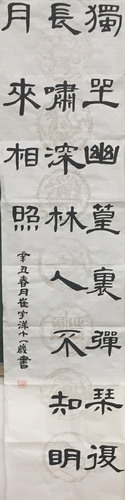 獨坐幽篁裏彈琴復
長嘯深林人不知明
月來相照
辛丑春月崔宇洋十一歲書